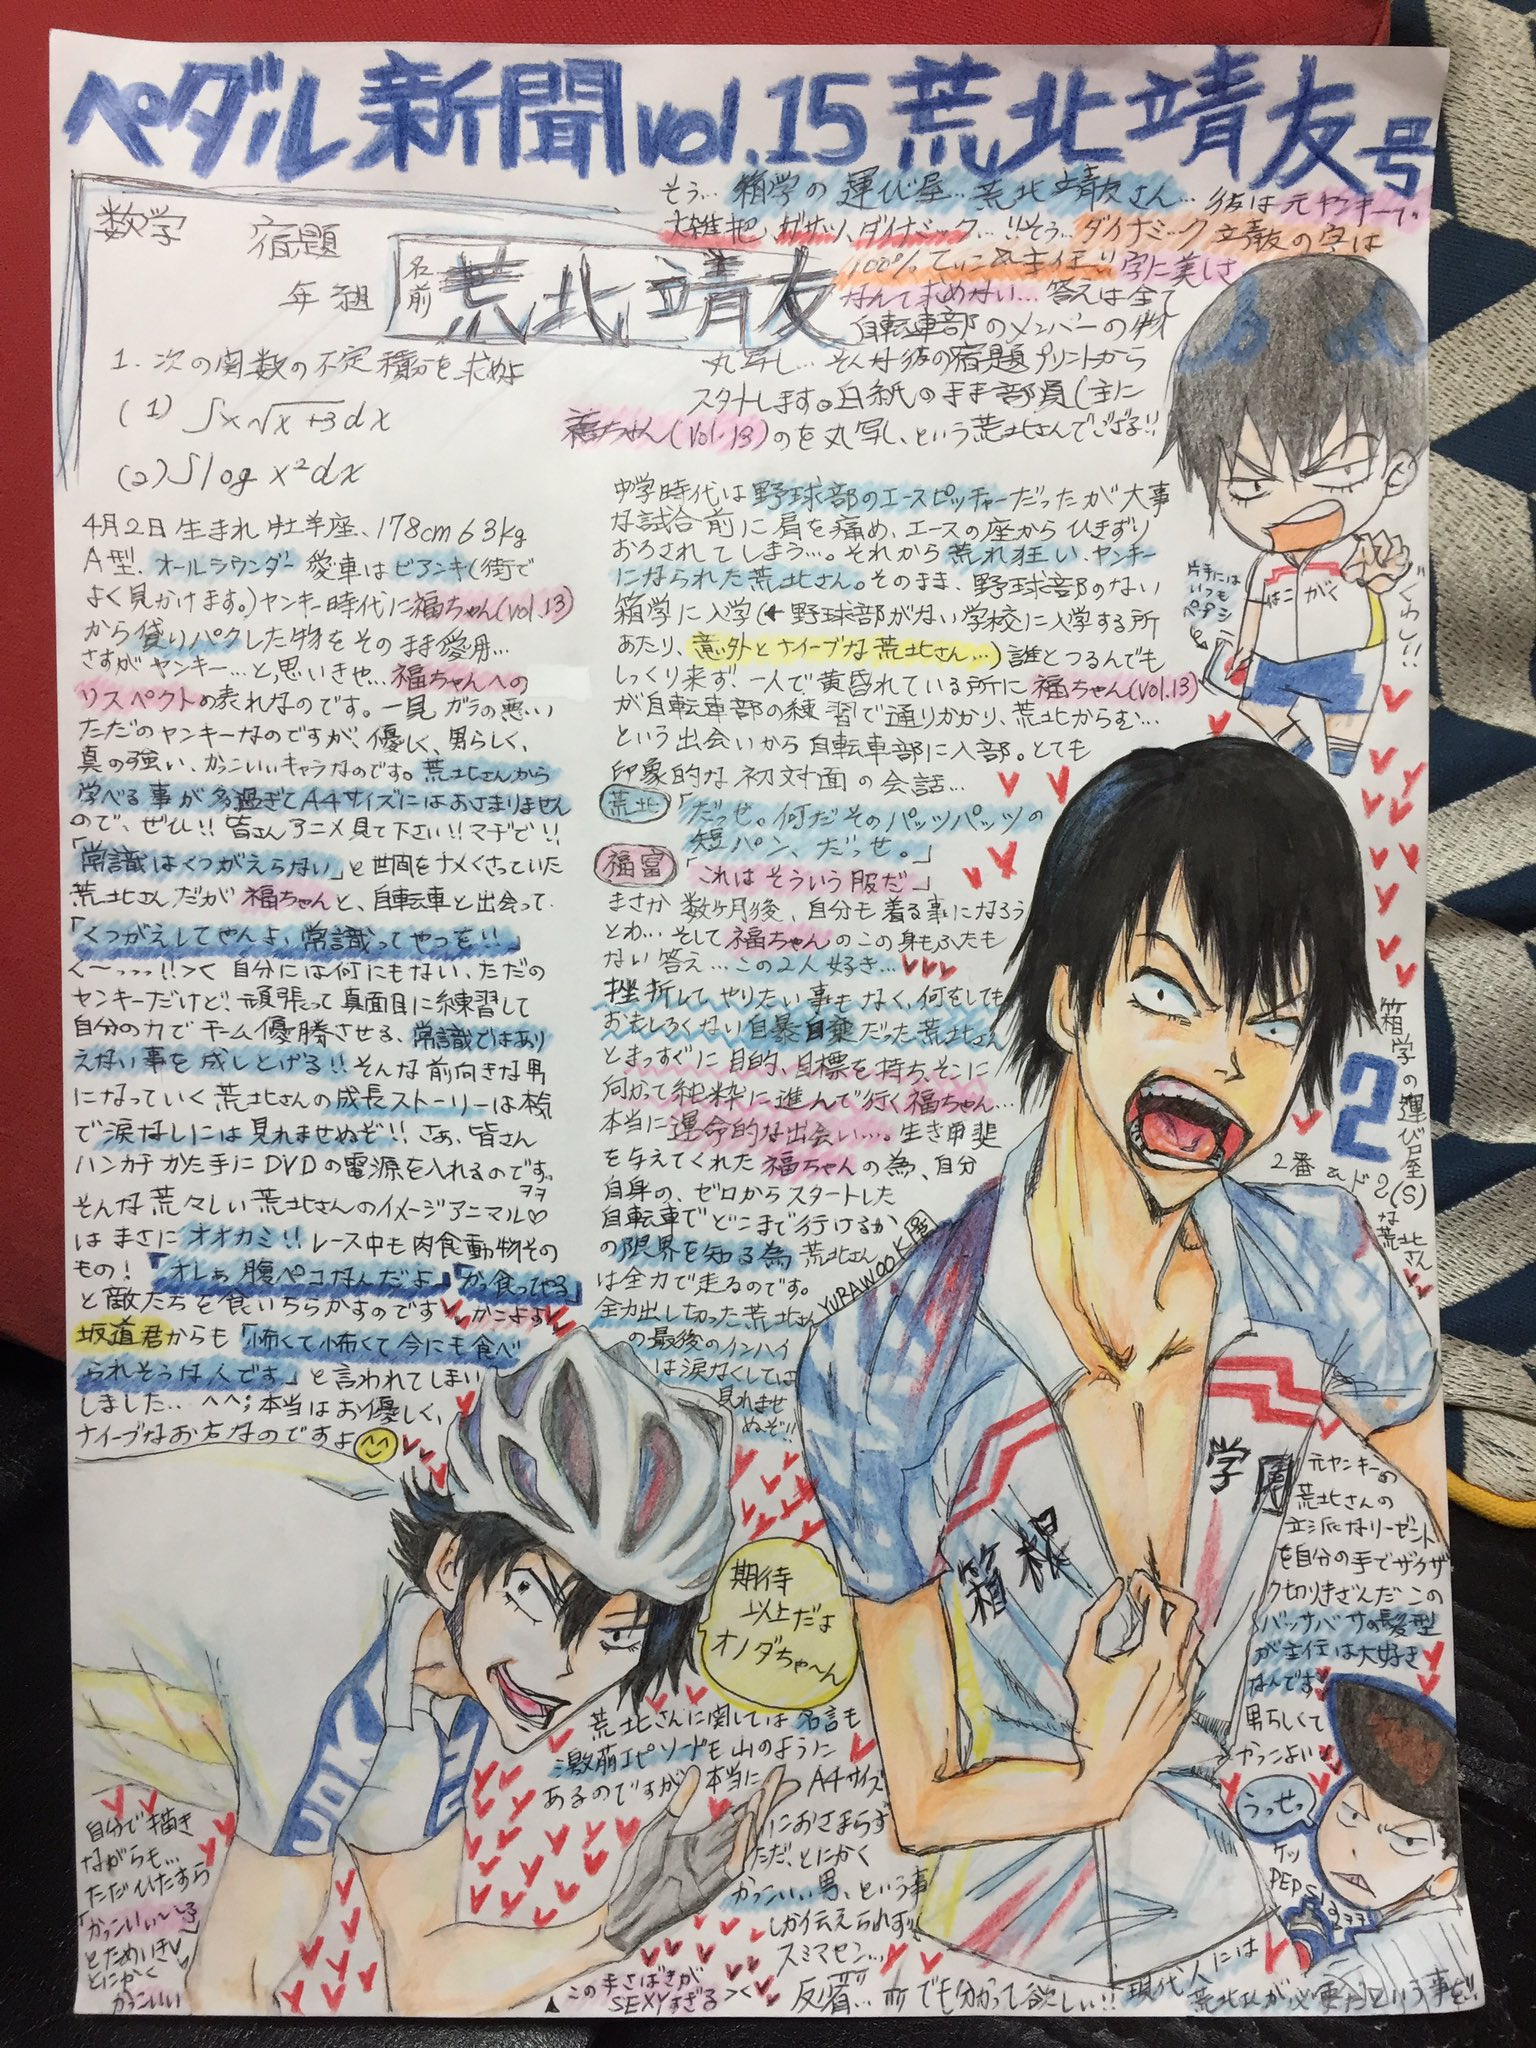 ペダル新聞vol.15荒北靖友号
そう…箱学の運び屋…荒北靖友さん…彼は元ヤンキーで
大雑把、ガサツ、ダイナミック…!!そう…ダイナミック靖友の字は
100%ていこ先主任!!字に美しさ
なんて求めない…答えは全て
自転車部のメンバーの物
丸写し…そんな彼の宿題プリントから
スタートします。白紙のまま部員(主に
福ちゃん(vol.13)のを丸写し、という荒北さんでござる!!
数学 宿題
年 組 名前 荒北 靖友
1.次の関数の不定積分を求めよ
(1) ∫x√x+3dx
(2)∫log x²dx
4月2日生まれ牡羊座、178cm63kg
A型、オールラウンダー 愛車はビアンキ(街で
よく見かけます。)ヤンキー時代に福ちゃん(vol.13)
から貸りパクした物をそのまま愛用…
さすがヤンキー…と、思いきや…福ちゃんへの
リスペクトの表れなのです。一見ガラの悪い
ただのヤンキーなのですが、優しく、男らしく、
真の強い、かっこいいキャラなのです。荒北さんから
学べる事が多過ぎてA4サイズにはおさまりません
ので、ぜひ!!皆さんアニメ見て下さい!!マヂで!!
「常識はくつがえらない」と世間をナメくさっていた
荒北さんだが福ちゃんと、自転車と出会って、
「くつがえしてやんよ、常識ってやつを!!」
く〜っっっ!!><自分には何にもない、ただの
ヤンキーだけど、頑張って真面目に練習して
自分の力でチーム優勝させる、常識ではあり
えない事を成しとげる!!そんな前向きな男
になっていく荒北さんの成長ストーリーは本気
で涙なしには見れませぬぞ!!さぁ、皆さん
ハンカチかた手にDVDの電源を入れるのです。
そんな荒々しい荒北さんのイメージアニマル♡
はまさにオオカミ!!レース中も肉食動物その
もの!「オレぁ腹ペコなんだよ」「かっ食ってやる」
と敵たちを食いちらかすのです かっこよすぎ
坂道君からも「怖くて怖くて今にも食べ
られそうな人です」と言われてしまい
しました…へへ;本当はお優しく、
ナイーブなお方なのですよ
中学時代は野球部のエースピッチャーだったが大事
な試合前に肩を痛め、エースの座からひきずり
おろされてしまう…。それから荒れ狂い、ヤンキー
になられた荒北さん。そのまま、野球部のない
箱学に入学(←野球部がない学校に入学する所
あたり、意外とナイーブな荒北さん…)誰とつるんでも
しっくり来ず、一人で黄昏れている所に福ちゃん(vol.13)
が自転車部の練習で通りかかり、荒北からむ…
という出会いから自転車部に入部。とても
印象的な初対面の会話…
荒北「だっせ。何だそのパッツパッツの
短パン、だっせ。」
福富「これはそういう服だ」
まさか数ヶ月後、自分も着る事になろう
とわ…そして福ちゃんのこの身もふたも
ない答え…この2人好き…♥♥♥
挫折してやりたい事もなく、何をしても
おもしろくない自暴自棄だった荒北さん
とまっすぐに目的、目標を持ち、そこに
向かって純粋に進んで行く福ちゃん…
本当に運命的な出会い…。生き甲斐
を与えてくれた福ちゃんの為、自分
自身の、ゼロからスタートした
自転車でどこまで行けるか
の限界を知る為 荒北さん
は全力で走るのです。
全力出し切った荒北さん
の最後のインハイ
は涙なくしては
見れませ
ぬぞ!!
YURAWOOK
片手には
いつも
ペプシ
はこ がく
ぐわし!!
箱学の運び屋
2
2番&ド2(S)
な荒北さん
箱根 学園
元ヤンキーの
荒北さんの
立派なリーゼント
を自分の手でザクザ
ク切りきざんだこの
バッサバサの髪型
が主任は大好き
なんです
男らしくて
かっこよい
うっせっ
ケッ
PEPSI
期待
以上だよ
オノダちゃ〜ん
荒北さんに関しては名言も
激萌エピソードも山のように
あるのですが本当にA4サイズ
におさまらず
ただ、とにかく
かっこいい男、という事
しか伝えられず
スミマセン…
反省…
でも分かって欲しい!!現代人には
荒北さんが必要だという事を!!
自分で描き
ながらも…
ただひたすら
「かっこいい〜」
とためいき
とにかく
かっこいい
この手さばきが
SEXYすぎる><